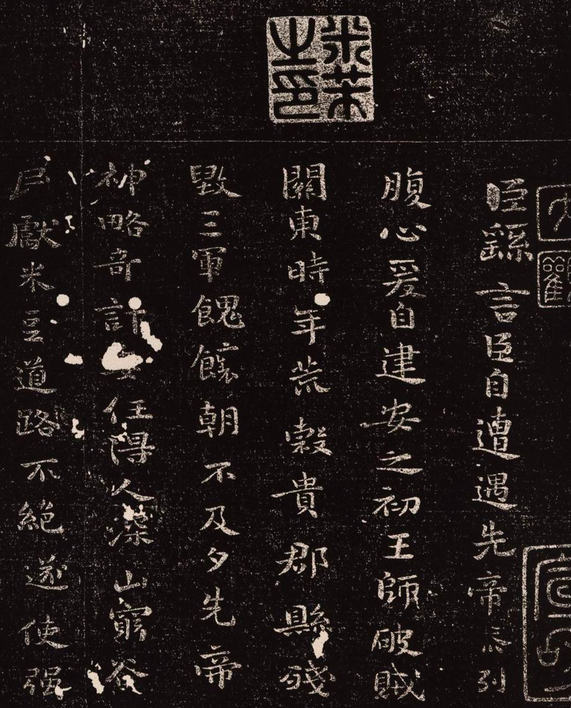 米芾之印
臣繇言臣自遭遇先帝忝列
腹心爰自建安之初王師破賊
關東時年荒穀貴郡縣殘
毀三軍餽饟朝不及夕先帝
神略奇計委任得人深山窮谷
民獻米豆道路不絕遂使强